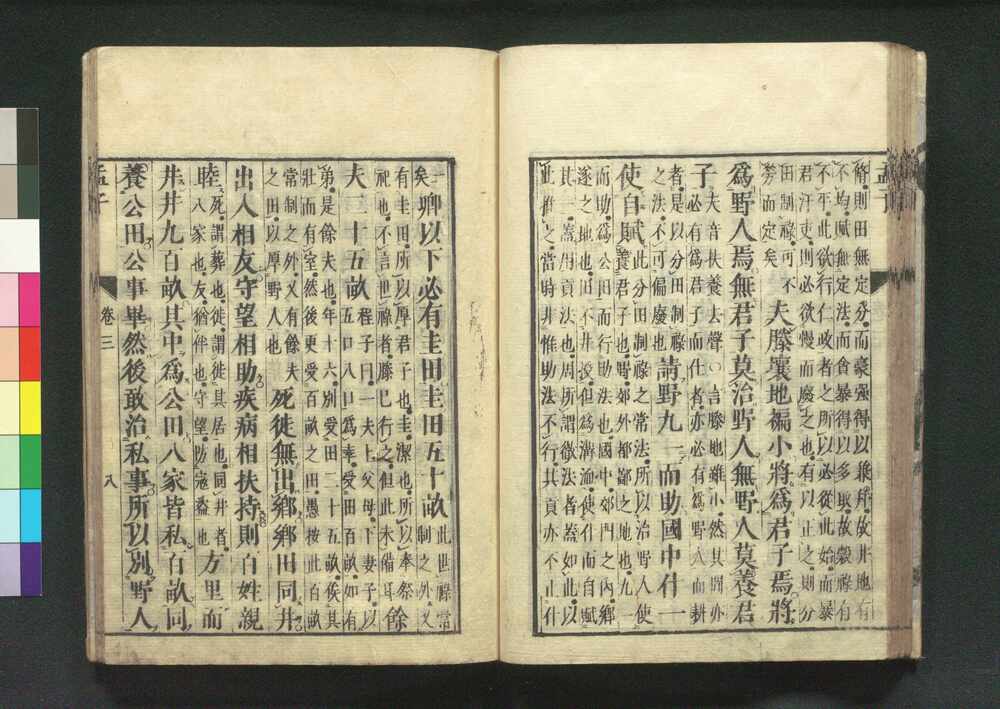 脩則田無定分而豪強得以兼并故井地有
不均賦無定法而貪暴得以多取故穀祿有
不平此欲行仁政者之所以必從此始而暴
君汙吏則必欲慢而廢之也有以正之則分
田制祿可不
勞而定矣
夫滕壤地褊小將爲君子焉將
爲野人焉無君子莫治野人無野人莫養君
子
夫音扶養去聲○言滕地雖小然其間亦
必有爲君子而仕者亦必有爲野人而耕
者是以分田制祿
之法不可偏廢也
請野九一而助國中什一
使自賦
此分田制祿之常法所以治野人使
養君子也野郊外都鄙之地也九一
而助爲公田而行助法也國中郊門之內鄉
遂之地也田不井授但爲溝洫使什而自賦
其一蓋用貢法也周所謂徹法者蓋如此以
此推之當時非惟助法不行其貢亦不止什
一
矣
卿以下必有圭田圭田五十畝
此世祿常
制之外又
有圭田所以厚君子也圭潔也所以奉祭
祀也不言世祿者滕已行之但此未備耳
餘
夫二十五畝
程子曰一夫上父母下妻子以
五口八口爲率受田百畝如有
弟是餘夫也年十六別受田二十五畝俟其
壯而有室然後更受百畝之田愚按此百畝
常制之外又有餘夫
之田以厚野人也
死徙無出鄉鄉田同井
出入相友守望相助疾病相扶持則百姓親
睦
死謂葬也徙謂徙其居也同井者
八家也友猶伴也守望防寇盜也
方里而
井井九百畝其中爲公田八家皆私百畝同
養公田公事畢然後敢治私事所以別野人
孟子 卷三 八